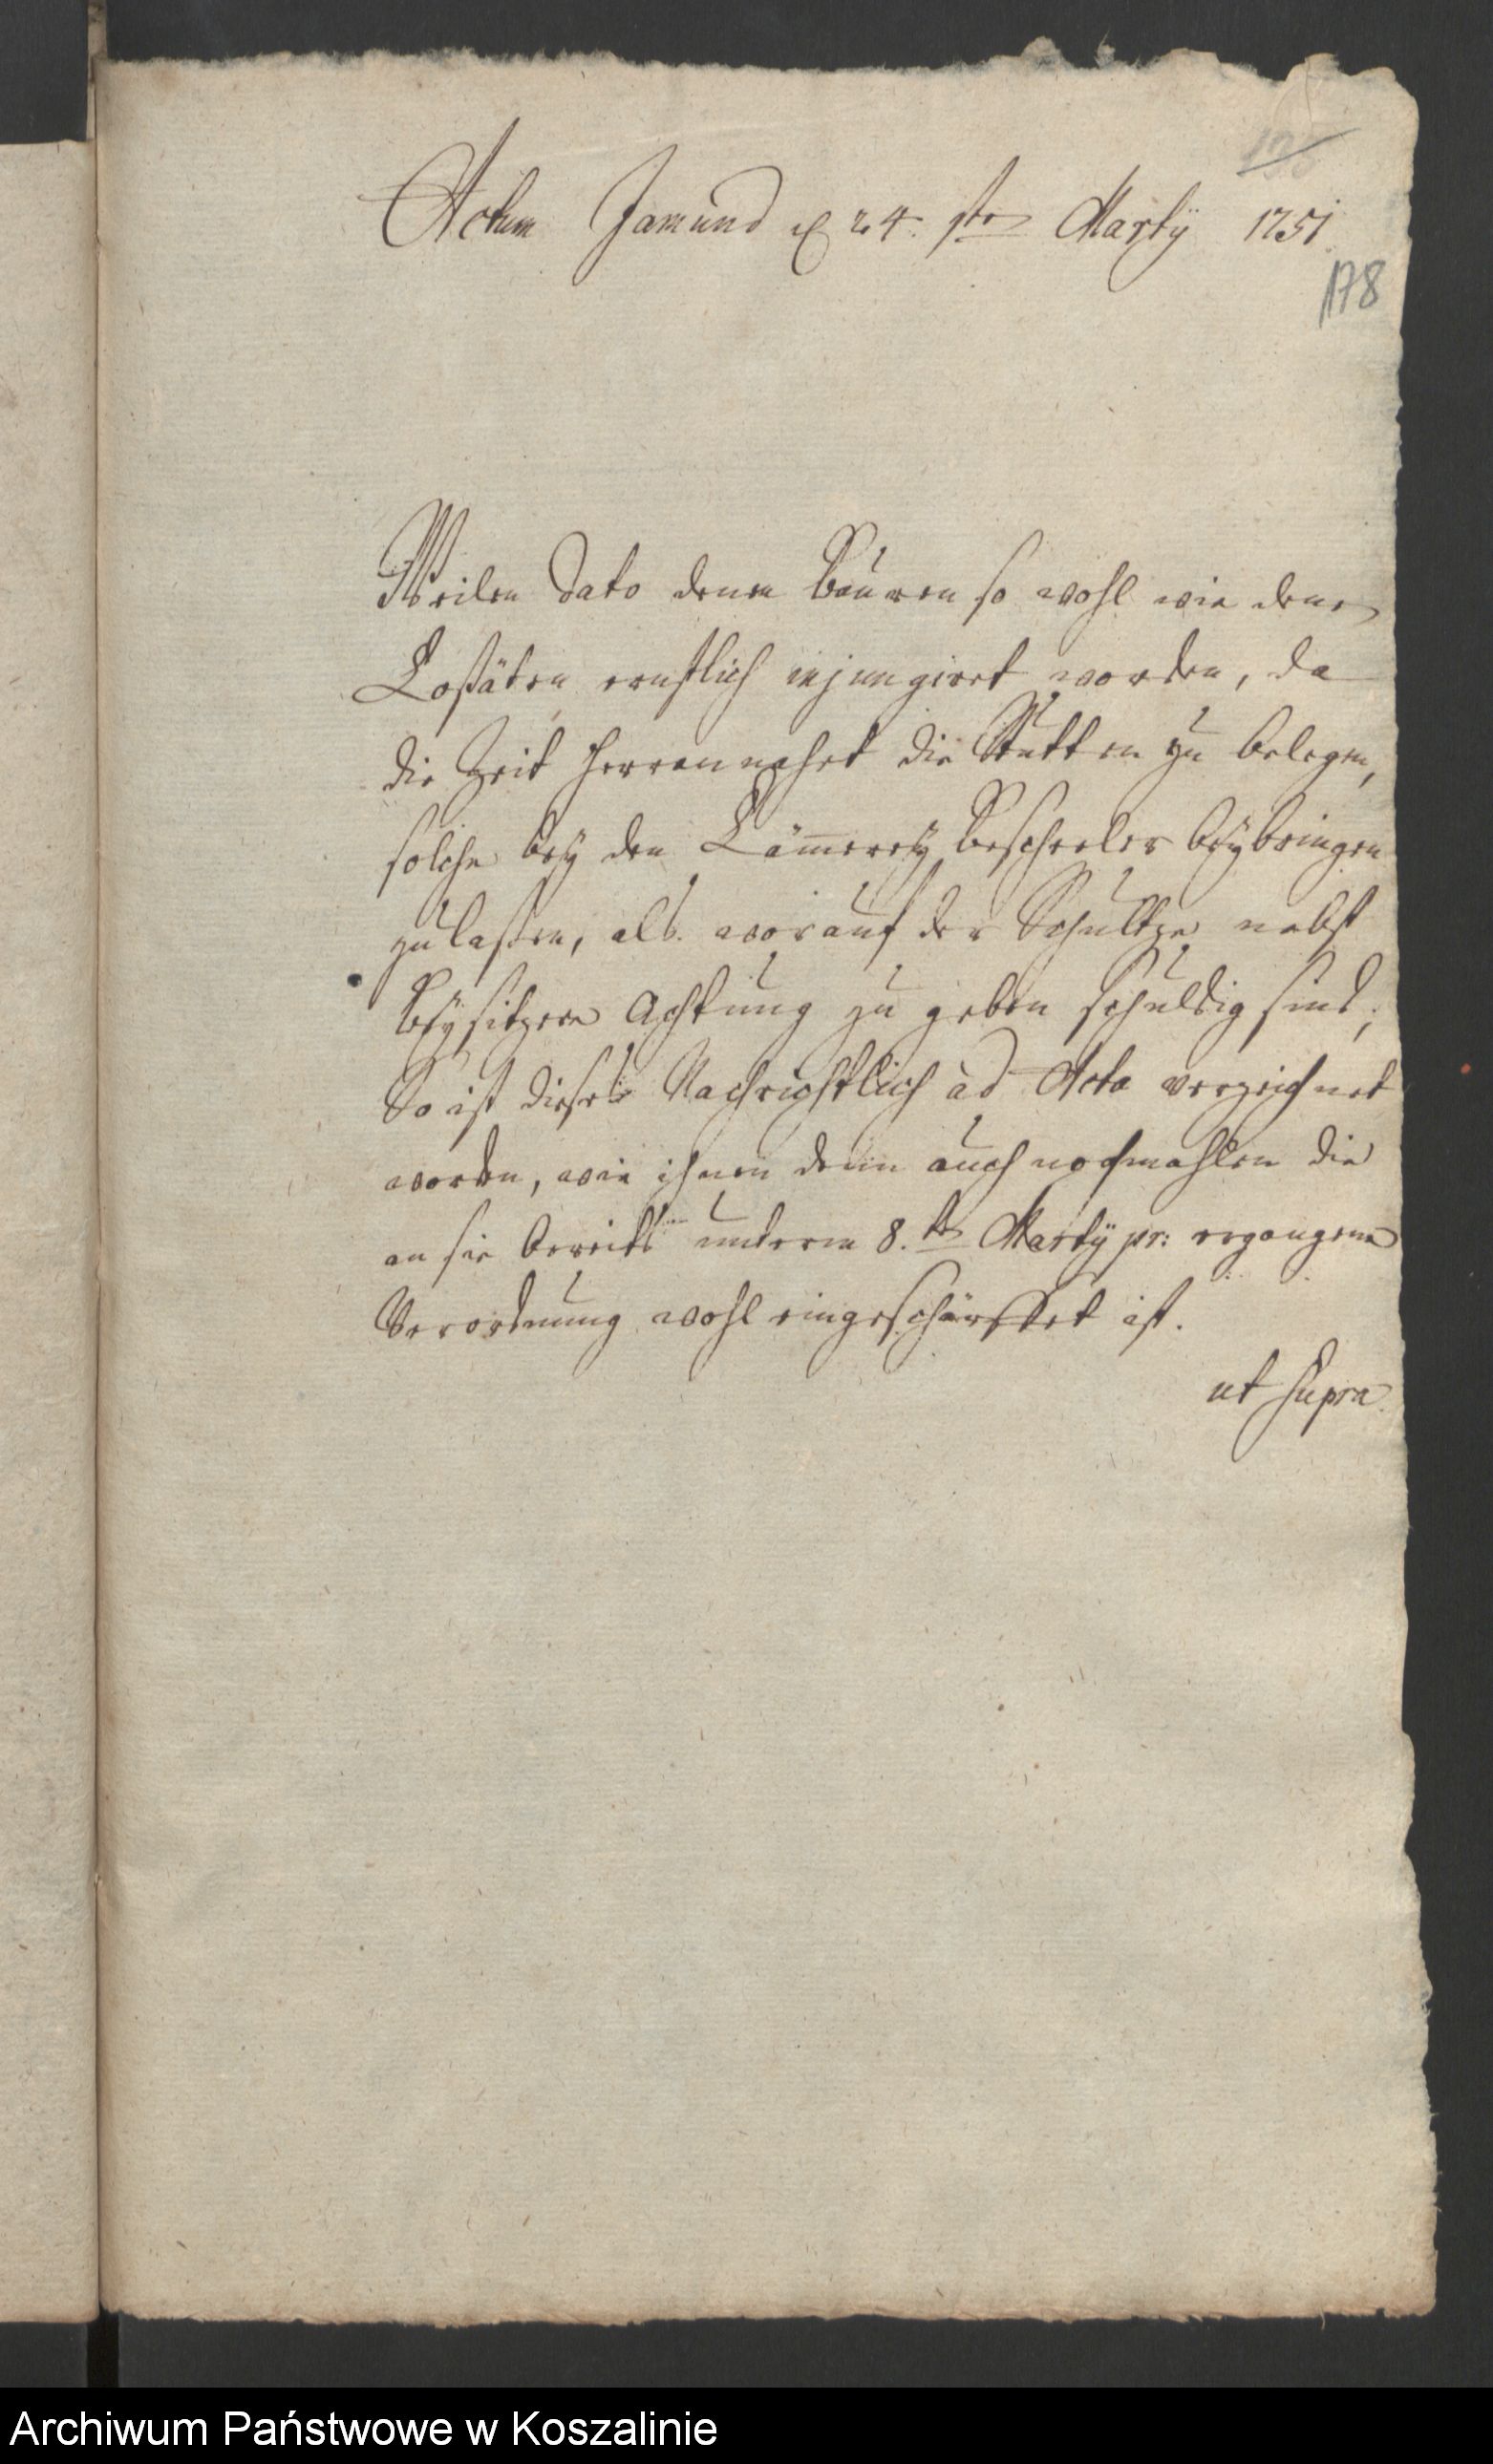 Actum Jamund d 24. ste Martÿ 1751
178
Weilen dato denen Bauren so wohl wie denen
Coßäten ernstlich injungiret worden, da
die Zeit herrannahet die Stutten zu belegen,
solche beÿ den Cämmereÿ Bescheeler beÿbringen
zu laßen, als worauf der Schultze nebst
beÿsitzern Achtung zu geben schuldig sind;
So ist dieses Nachrichtlich ad Acta verzeichnet
worden, wie ihnen denn auch nochmahlen die
an sie bereits unterm 8. te Martÿ pr: ergangene
Verordnung wohl eingeschärffet ist.
ut supra
Archiwum Państwowe w Koszalinie